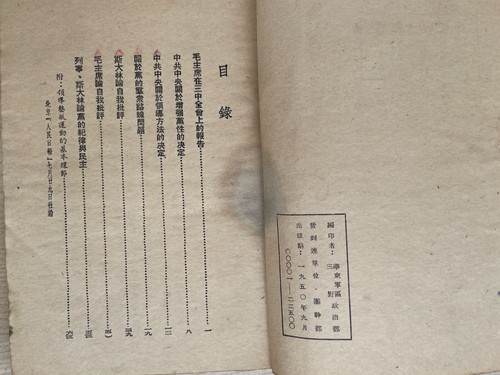 編印者：華東軍區
三野政治部
發到連單位·團幹部
出版期：一九五〇年九月
〇〇〇〇一—二二五〇〇
目錄
毛主席在三中全會上的報告……一
中共中央關於增强黨性的决定……八
中共中央關於領導方法的决定……一三
關於黨的羣衆路線問題……一九
斯大林論自我批評……
毛主席論自我批評……
列寧、斯大林論黨的紀律與民主……
附：領導整風運動的基本環節……
北京「人民日報」七月廿九日社論